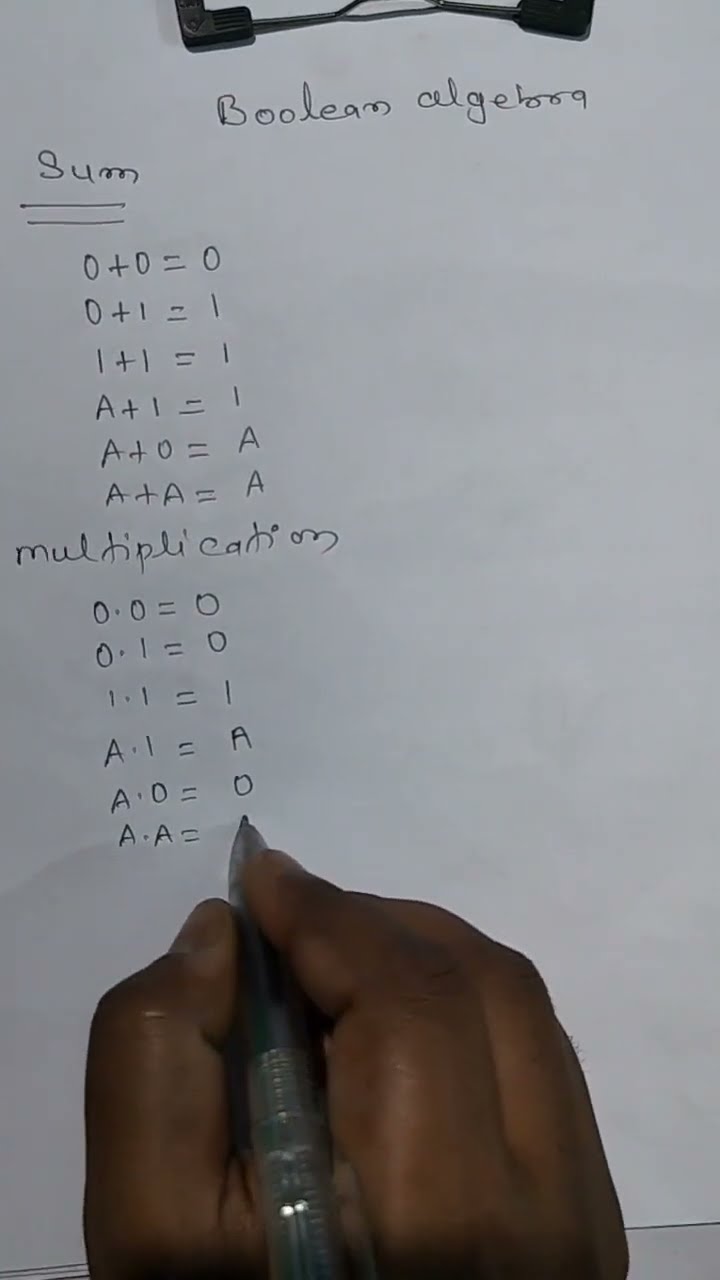 Boolean algebra
Sum
0+0=0
0+1=1
1+1=1
A+1=1
A+0=A
A+A=A
multiplication
0·0=0
0·1=0
1·1=1
A·1=A
A·0=0
A·A=